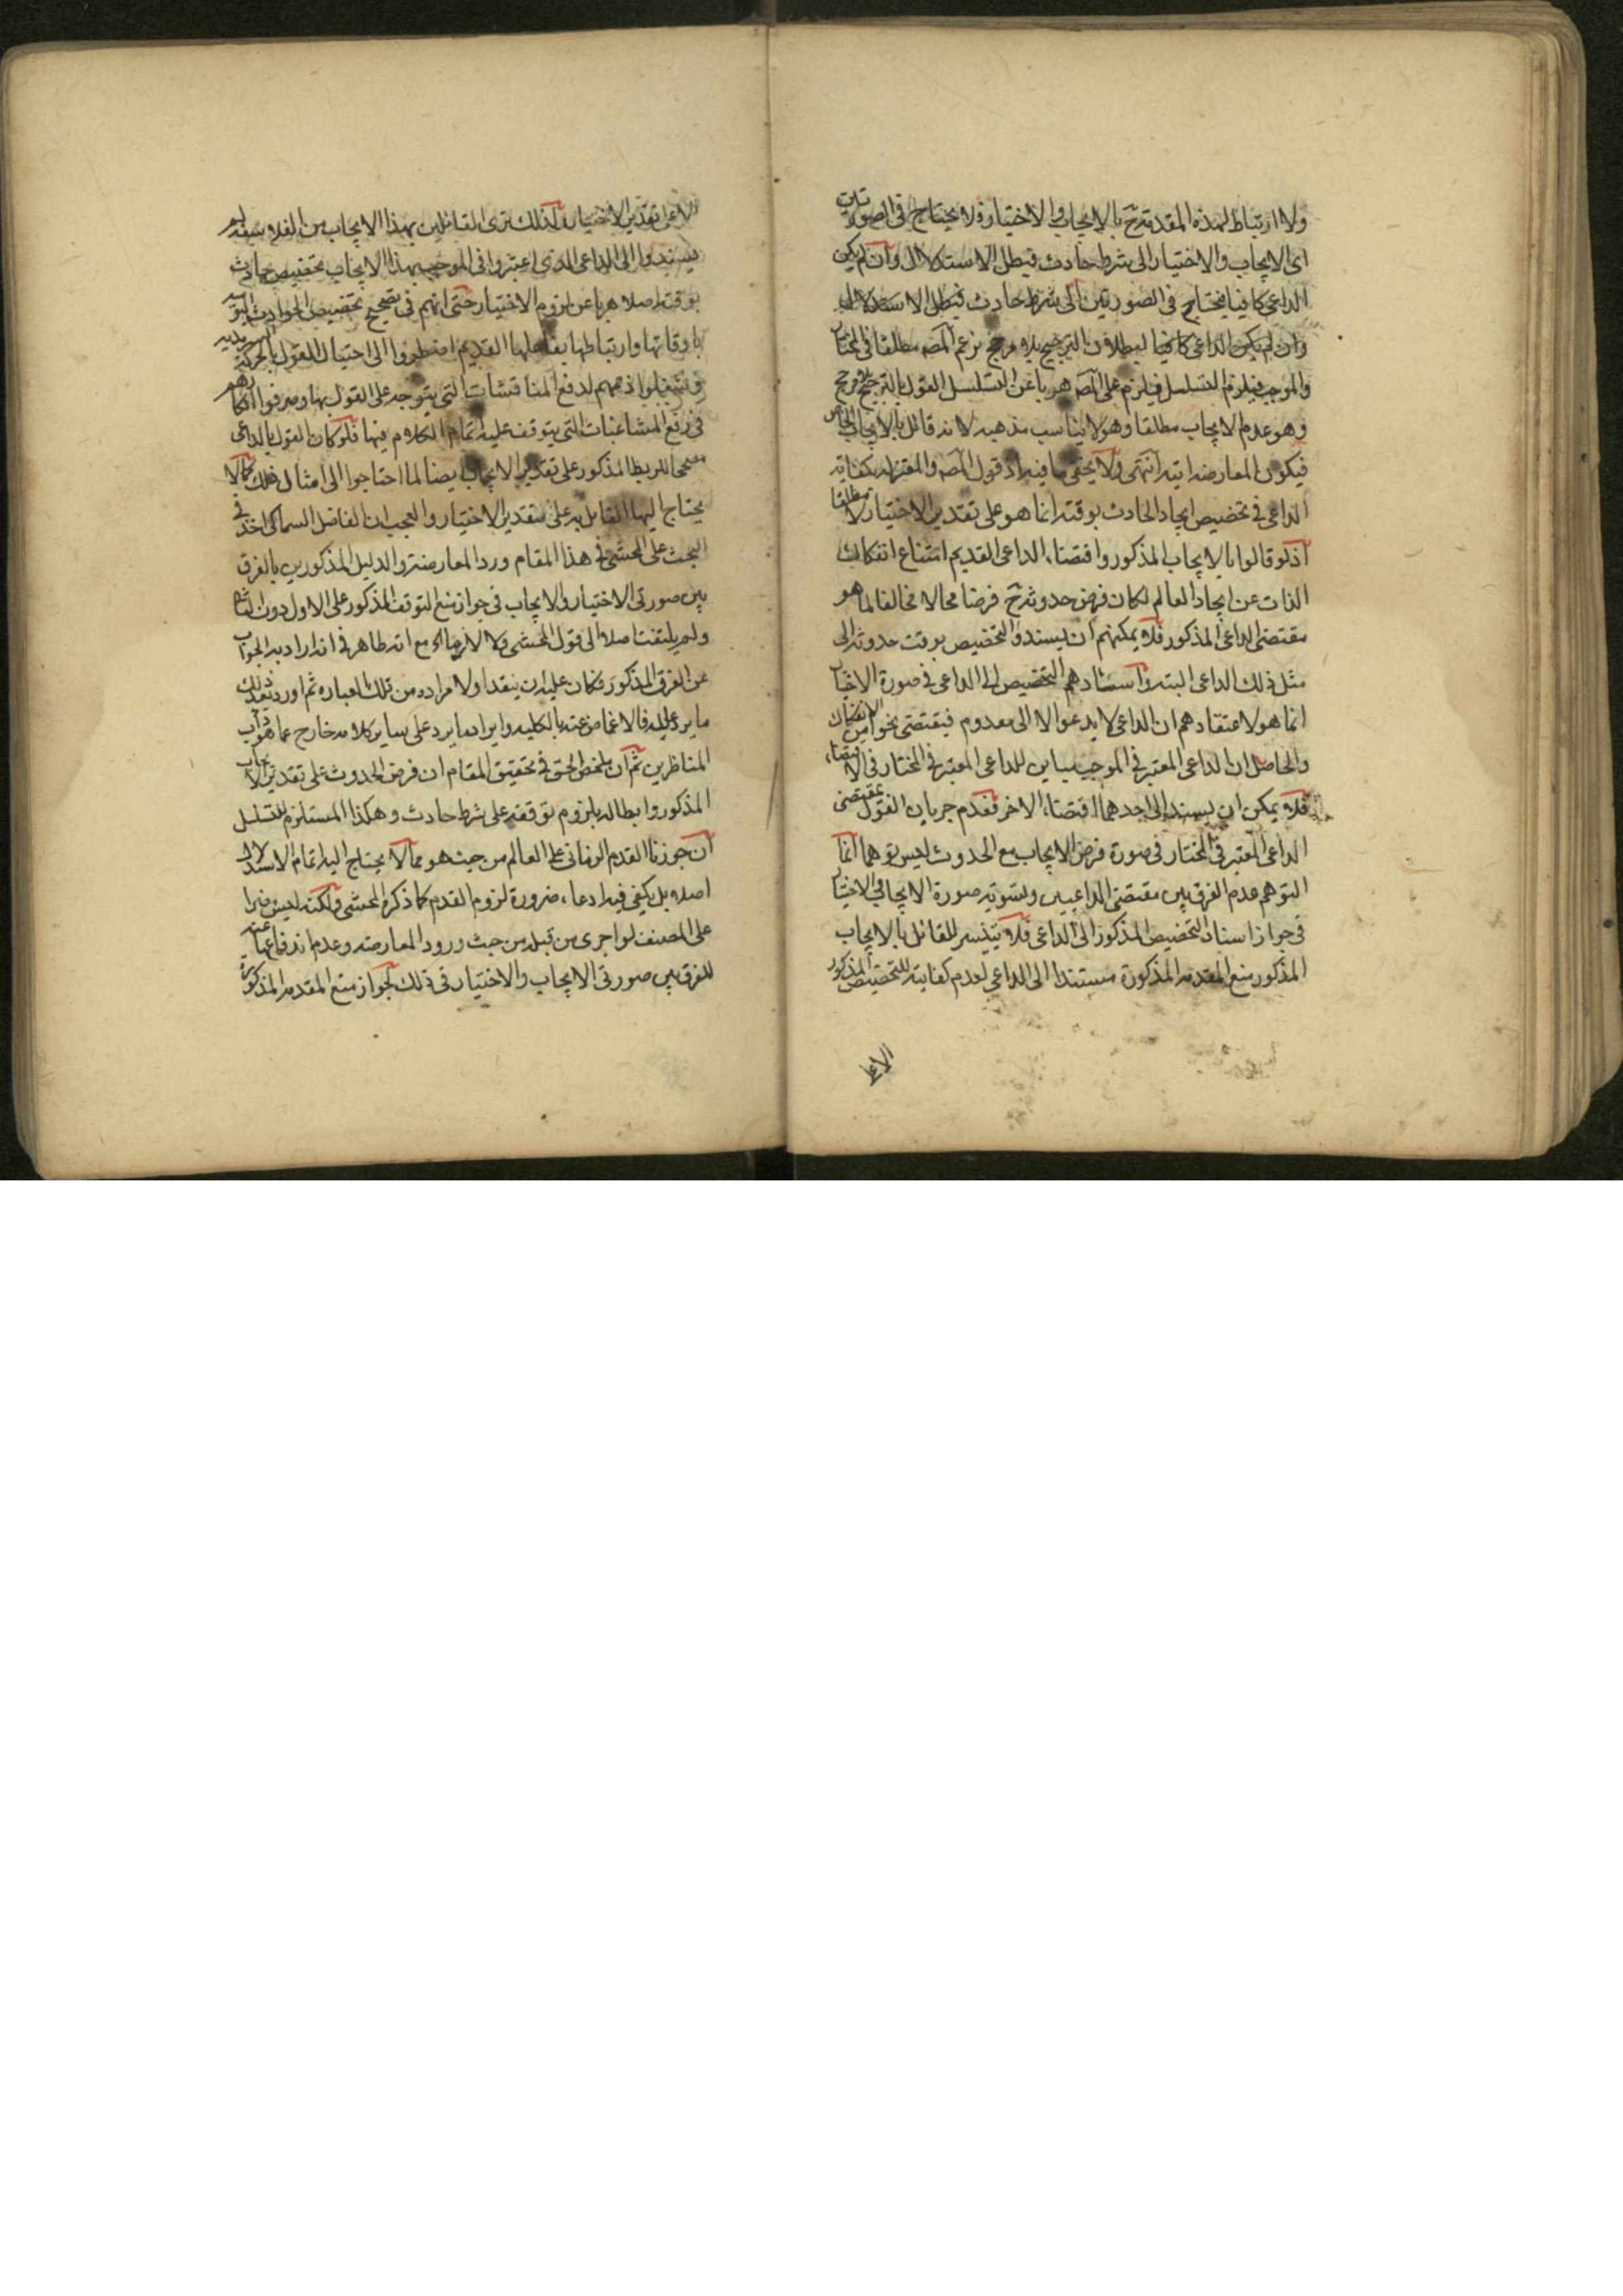 ولا ارتباط لهذه المقدمة ح بالايجاب والاختيار فلا يحتاج فى الصورتين
اى الايجاب والاختيار الى شرط حادث فيطل الاستدلال وان لم يكن
الداعى كافيا فيحتاج فى الصورتين الى شرط حادث فيطل الاستدلال
وان لم يكن الداعى كافيا لبطلان الترجيح بلا مرجح بزعم المصه مطلقا فى المختار
والموجب فيلزم التسلسل فيلزم على المصه هربا عن التسلسل القول بالترجيح بلا مرجح
وهو عدم الايجاب مطلقا وهو لا يناسب مذهبه لانه قائل بالايجاب الخاص
فيكون المعارضه اتيه انتهى ولا يخفى ما فيه اذ قول المصه والمعتزله بكفاية
الداعى فى تخصيص ايجاد الحادث بوقته انما هو على تقدير الاختيار لا مطلقا
اذ لو قالوا بالايجاب المذكور واقتضاء الداعى القديم امتناع انفكاك
الذات عن ايجاد العالم لكان فرض حدوثه ح فرضا محالا مخالفا لما هو
مقتضى الداعى المذكور فلا يمكنهم ان يسندوا التخصيص بوقت حدوثه الى
مثل ذلك الداعى البته واسنادهم التخصيص الى الداعى فى صورة الاختيار
انما هو لاعتقادهم ان الداعى لا يدعوا الا الى معدوم فيقتضى نحوا من الانفكاك
والحاصل ان الداعى المعتبر فى الموجب مباين للداعى المعتبر فى المختار فى الاقتضاء
فلا يمكن ان يسند الى احدهما اقتضاء الاخر فعدم جريان القول بمقتضى
الداعى المعتبر فى المختار فى صورة فرض الايجاب مع الحدوث ليس توهما انما
التوهم عدم الفرق بين مقتضى الداعيين وتسوية صورة الايجاب والاختيار
فى جواز اسناد التخصيص المذكور الى الداعى فلا يتيسر للقائل بالايجاب
المذكور منع المقدمه المذكورة مستندا الى الداعى لعدم كفايته للتخصيص المذكور
الا على
الا على تقدير الاختيار ولذلك ترى القائلين بهذا الايجاب من الفلاسفه لم
يسندوا الى الداعى الذى اعتبروا فى الموجب بهذا الايجاب تخصيص حادث
بوقته اصلا هربا عن لزوم الاختيار حتى انهم فى تصحيح تخصيص الحوادث اليوميه
باوقاتها وارتباطها بفاعلها القديم اضطروا الى احتيال القول بالحركة السرمديه
اذهانهم لدفع المناقشات التى يتوجه على القول بها وصرفوا افكارهم
فى رفع المشاغبات التى يتوقف عليه اتمام الكلام فيها فلو كان القول بالداعى
مصححا للربط المذكور على تقدير الايجاب ايضا لما احتاجوا الى امثال ذلك كما لا
يحتاج اليها القائل به على تقدير الاختيار والعجب ان الفاضل السماكى اخذ فى
البحث على المحشى فى هذا المقام ورد المعارضة والدليل المذكورين بالفرق
بين صورتى الاختيار والايجاب فى جواز منع التوقف المذكور على الاول دون الثانى
ولم يلتفت اصلا الى قول المحشى مع انه ظاهر فى انه اراد به الجواب
عن الفرق المذكور فكان عليه ان ينقد اولا مراده من تلك العباره ثم اورد بعد ذلك
ما يرد عليه فالاغماض عنه بالكليه وايراد ما يرد على ساير كلامه خارج عما هو داب
المناظرين ثم ان ملخص الحق فى تحقيق المقام ان فرض الحدوث على تقدير الايجاب
المذكور وابطاله بلزوم توقفه على شرط حادث وهكذا المستلزم للتسلسل
ان جوزنا القدم الزمانى على العالم من حيث هو مما لا يحتاج اليه اتمام الاستدلال
اصلا بل يكفى فيه ادعاء ضرورة لزوم القدم كما ذكره المحشى ولكنه ليس ضرا
على المصنف لو اجرى من قبله من حيث ورود المعارضه وعدم اندفاعها عنه
للفرق بين صورتى الايجاب والاختيار فى ذلك لجواز منع المقدمه المذكورة